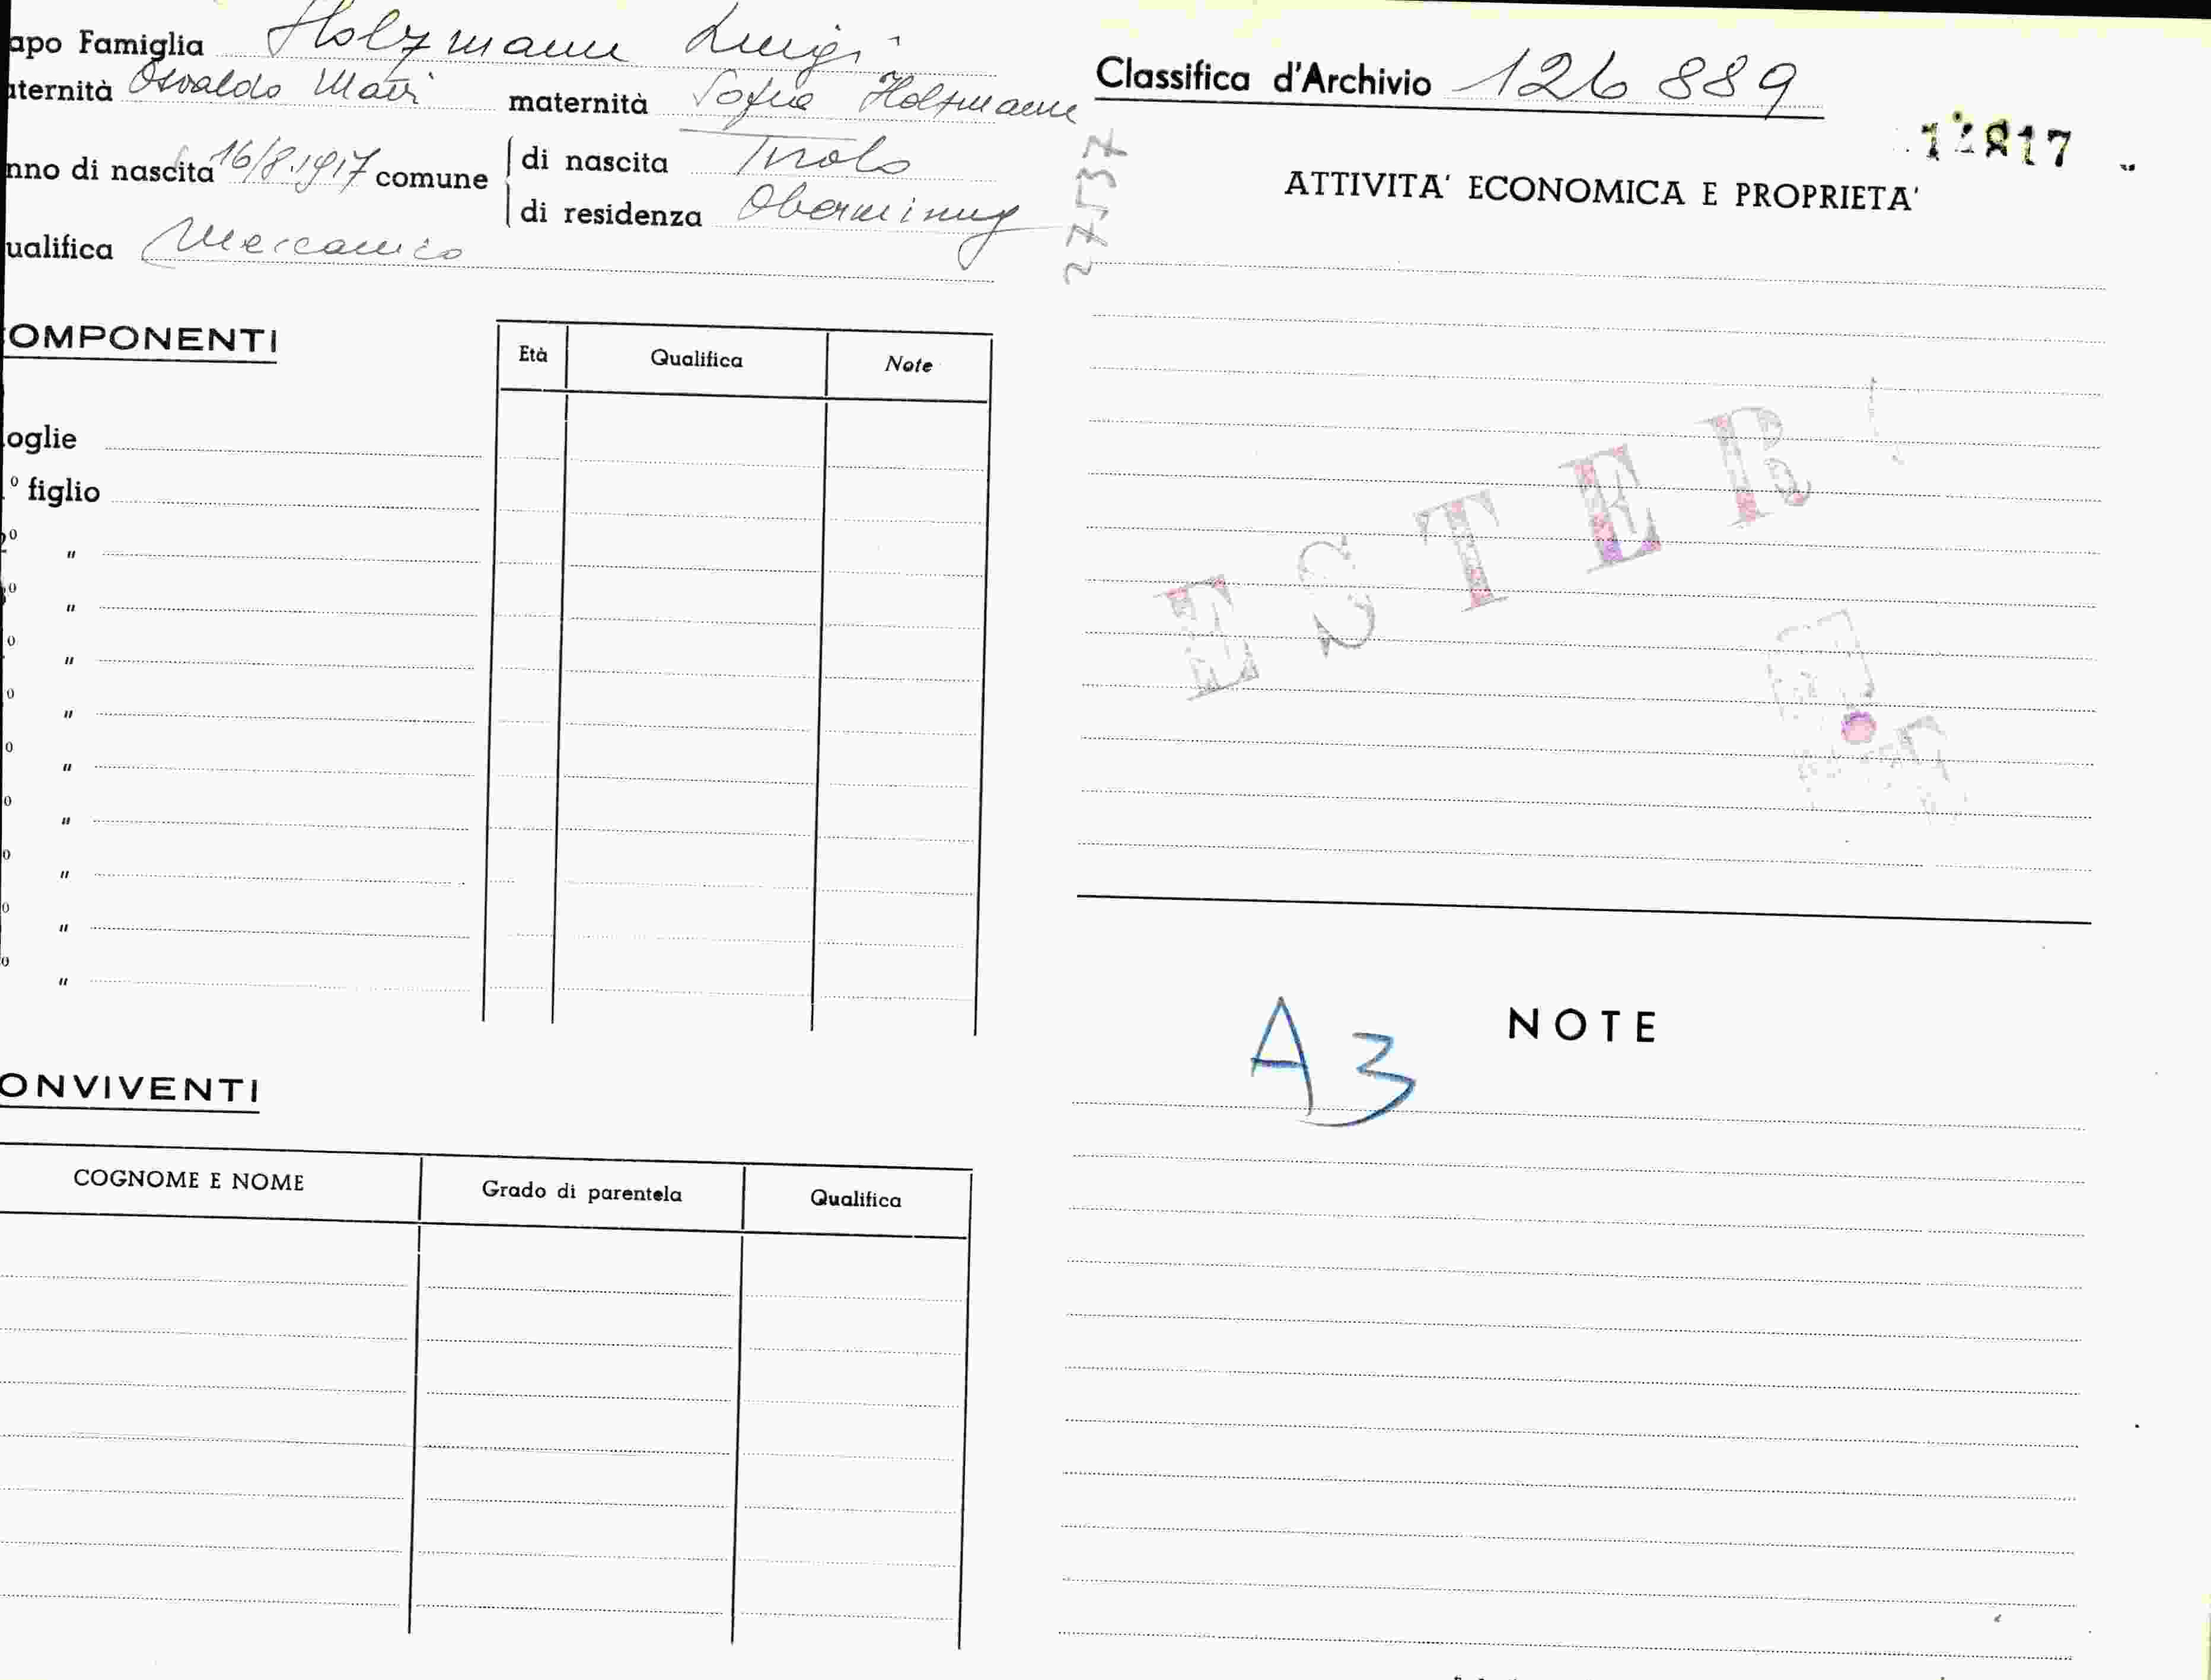 apo Famiglia Holzmann Luigi
aternità Osvaldo Mair maternità Sofia Holtzmann
nno di nascita 16/8.1917 comune di nascita Tirolo
di residenza
ualifica Meccanico
OMPONENTI
Età Qualifica Note
oglie
° figlio
2° "
° "
° "
° "
° "
° "
° "
° "
° "
ONVIVENTI
COGNOME E NOME Grado di parentela Qualifica
Classifica d'Archivio 126 889
27537
ATTIVITA' ECONOMICA E PROPRIETA'
ESTER
A3
NOTE